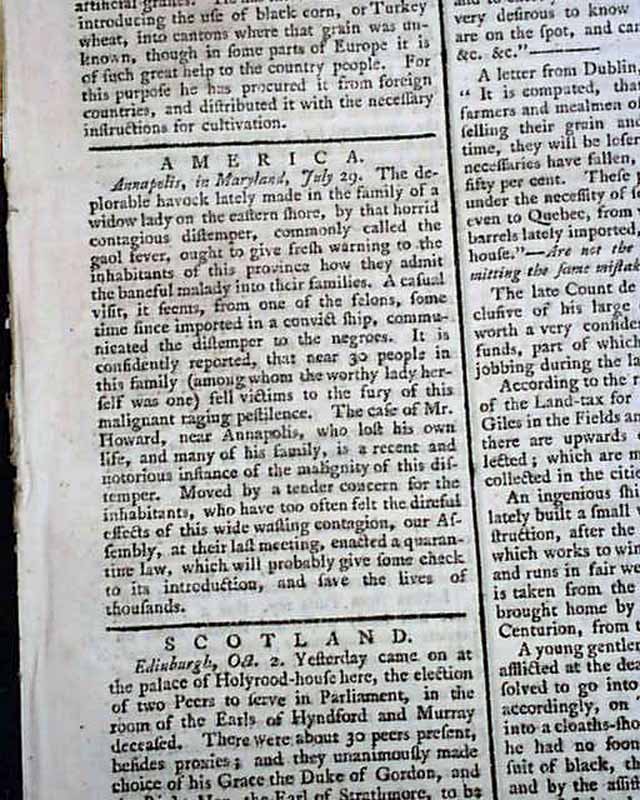 introducing the uſe of black corn, or Turkey
wheat, into cantons where that grain was un-
known, though in ſome parts of Europe it is
of ſuch great help to the country people. For
this purpoſe he has procured it from foreign
countries, and diſtributed it with the neceſſary
inſtructions for cultivation.
AMERICA.
Annapolis, in Maryland, July 29. The de-
plorable havock lately made in the family of a
widow lady on the eaſtern ſhore, by that horrid
contagious diſtemper, commonly called the
gaol fever, ought to give freſh warning to the
inhabitants of this province how they admit
the baneful malady into their families. A caſual
viſit, it ſeems, from one of the felons, ſome
time ſince imported in a convict ſhip, commu-
nicated the diſtemper to the negroes. It is
confidently reported, that near 30 people in
this family (among whom the worthy lady her-
ſelf was one) fell victims to the fury of this
malignant raging peſtilence. The caſe of Mr.
Howard, near Annapolis, who loſt his own
life, and many of his family, is a recent and
notorious inſtance of the malignity of this diſ-
temper. Moved by a tender concern for the
inhabitants, who have too often felt the direful
effects of this wide waſting contagion, our Aſ-
ſembly, at their laſt meeting, enacted a quaran-
tine law, which will probably give ſome check
to its introduction, and ſave the lives of
thouſands.
SCOTLAND.
Edinburgh, Oct. 2. Yeſterday came on at
the palace of Holyrood-houſe here, the election
of two Peers to ſerve in Parliament, in the
room of the Earls of Hyndford and Murray
deceaſed. There were about 30 peers preſent,
beſides proxies; and they unanimouſly made
choice of his Grace the Duke of Gordon, and
the Earl of Strathmore, to be
very deſirous to know
are on the ſpot, and can
&c. &c."
A letter from Dublin,
" It is computed, that
farmers and mealmen o
ſelling their grain and
time, they will be loſer
neceſſaries have fallen,
fifty per cent. Theſe p
under the neceſſity of ſe
even to Quebec, from
barrels lately imported,
houſe."—Are not the
mitting the ſame miſtak
The late Count de
cluſive of his large
worth a very conſide
funds, part of which
jobbing during the la
According to the r
of the Land-tax for
Giles in the Fields an
there are upwards
lected; which are m
collected in the citie
An ingenious ſhi
lately built a ſmall v
ſtruction, after the
which works to win
and runs in fair we
is taken from the
brought home by
Centurion, from t
A young gentle
afflicted at the dea
ſolved to go into
accordingly, on
into a cloaths-ſho
he had no ſoon
ſuit of black, th
and by the aſſiſ